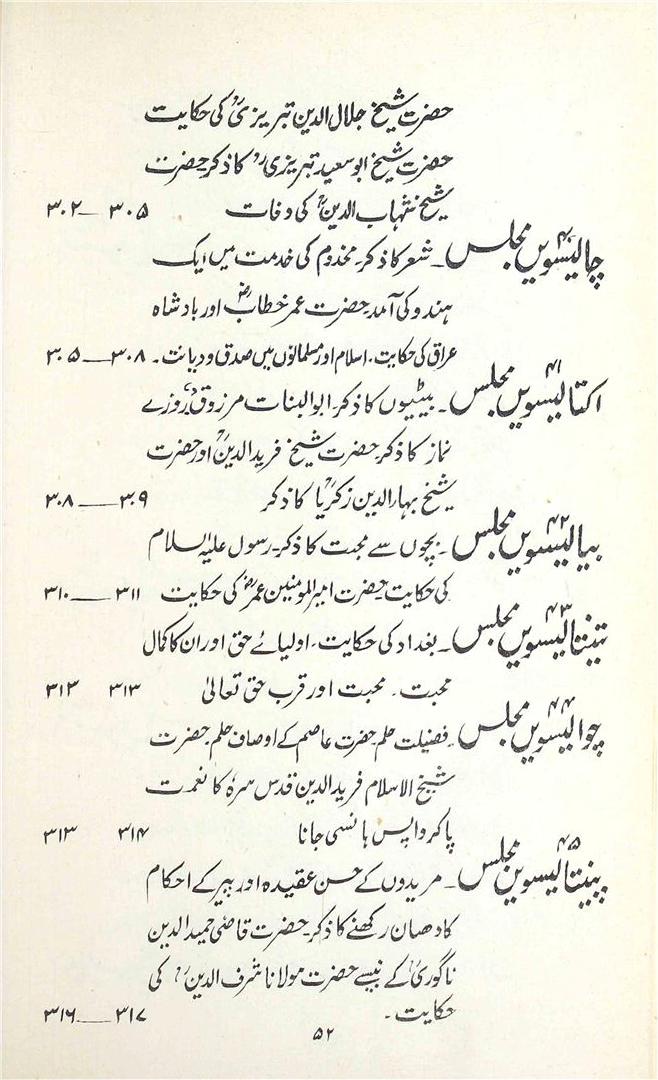 حضرت شیخ جلال الدین تبریزیؒ کی حکایت
حضرت شیخ ابو سعید تبریزیؒ کا ذکر۔ حضرت
شیخ شہاب الدینؒ کی وفات ۳۰۲—۳۰۵
۴۰ چالیسویں مجلس۔ شعر کا ذکر۔ مخدوم کی خدمت میں ایک
ہندو کی آمد۔ حضرت عمر خطابؓ اور بادشاہ
عراق کی حکایت۔ اسلام اور مسلمانوں میں صدق و دیانت۔ ۳۰۵—۳۰۸
۴۱ اکتالیسویں مجلس۔ بیٹیوں کا ذکر۔ ابوالبنات مرزوق روزے
نماز کا ذکر۔ حضرت شیخ فرید الدینؒ اور حضرت
شیخ بہار الدین زکریاؒ کا ذکر ۳۰۸—۳۰۹
۴۲ بیالیسویں مجلس۔ بچوں سے محبت کا ذکر۔ رسول علیہ السلام
کی حکایت۔ حضرت امیر المومنین عمرؓ کی حکایت ۳۱۰—۳۱۱
۴۳ تینتالیسویں مجلس۔ بغداد کی حکایت۔ اولیائے حق اور ان کا کمال
محبت۔ محبت اور قرب حق تعالیٰ ۳۱۳ ۳۱۳
۴۴ چوالیسویں مجلس۔ فضیلت حلم۔ حضرت عاصم کے اوصاف حلم۔ حضرت
شیخ الاسلام فرید الدین قدس سرہٗ کا نعمت
پا کر واپس ہانسی جانا ۳۱۳ ۳۱۴
۴۵ پینتالیسویں مجلس۔ مریدوں کے حسن عقیدہ اور پیر کے احکام
کا دھیان رکھنے کا ذکر۔ حضرت قاضی حمید الدین
ناگوریؒ کے نبیسے حضرت مولانا شرف الدینؒ کی
حکایت۔ ۳۱۶—۳۱۷
۵۲